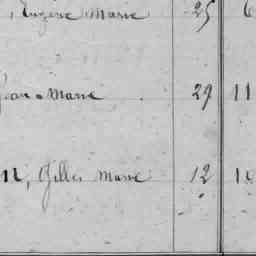 , Eugène Marie 25 6
Jean-Marie 29 11
n, Gilles Marie 12 1